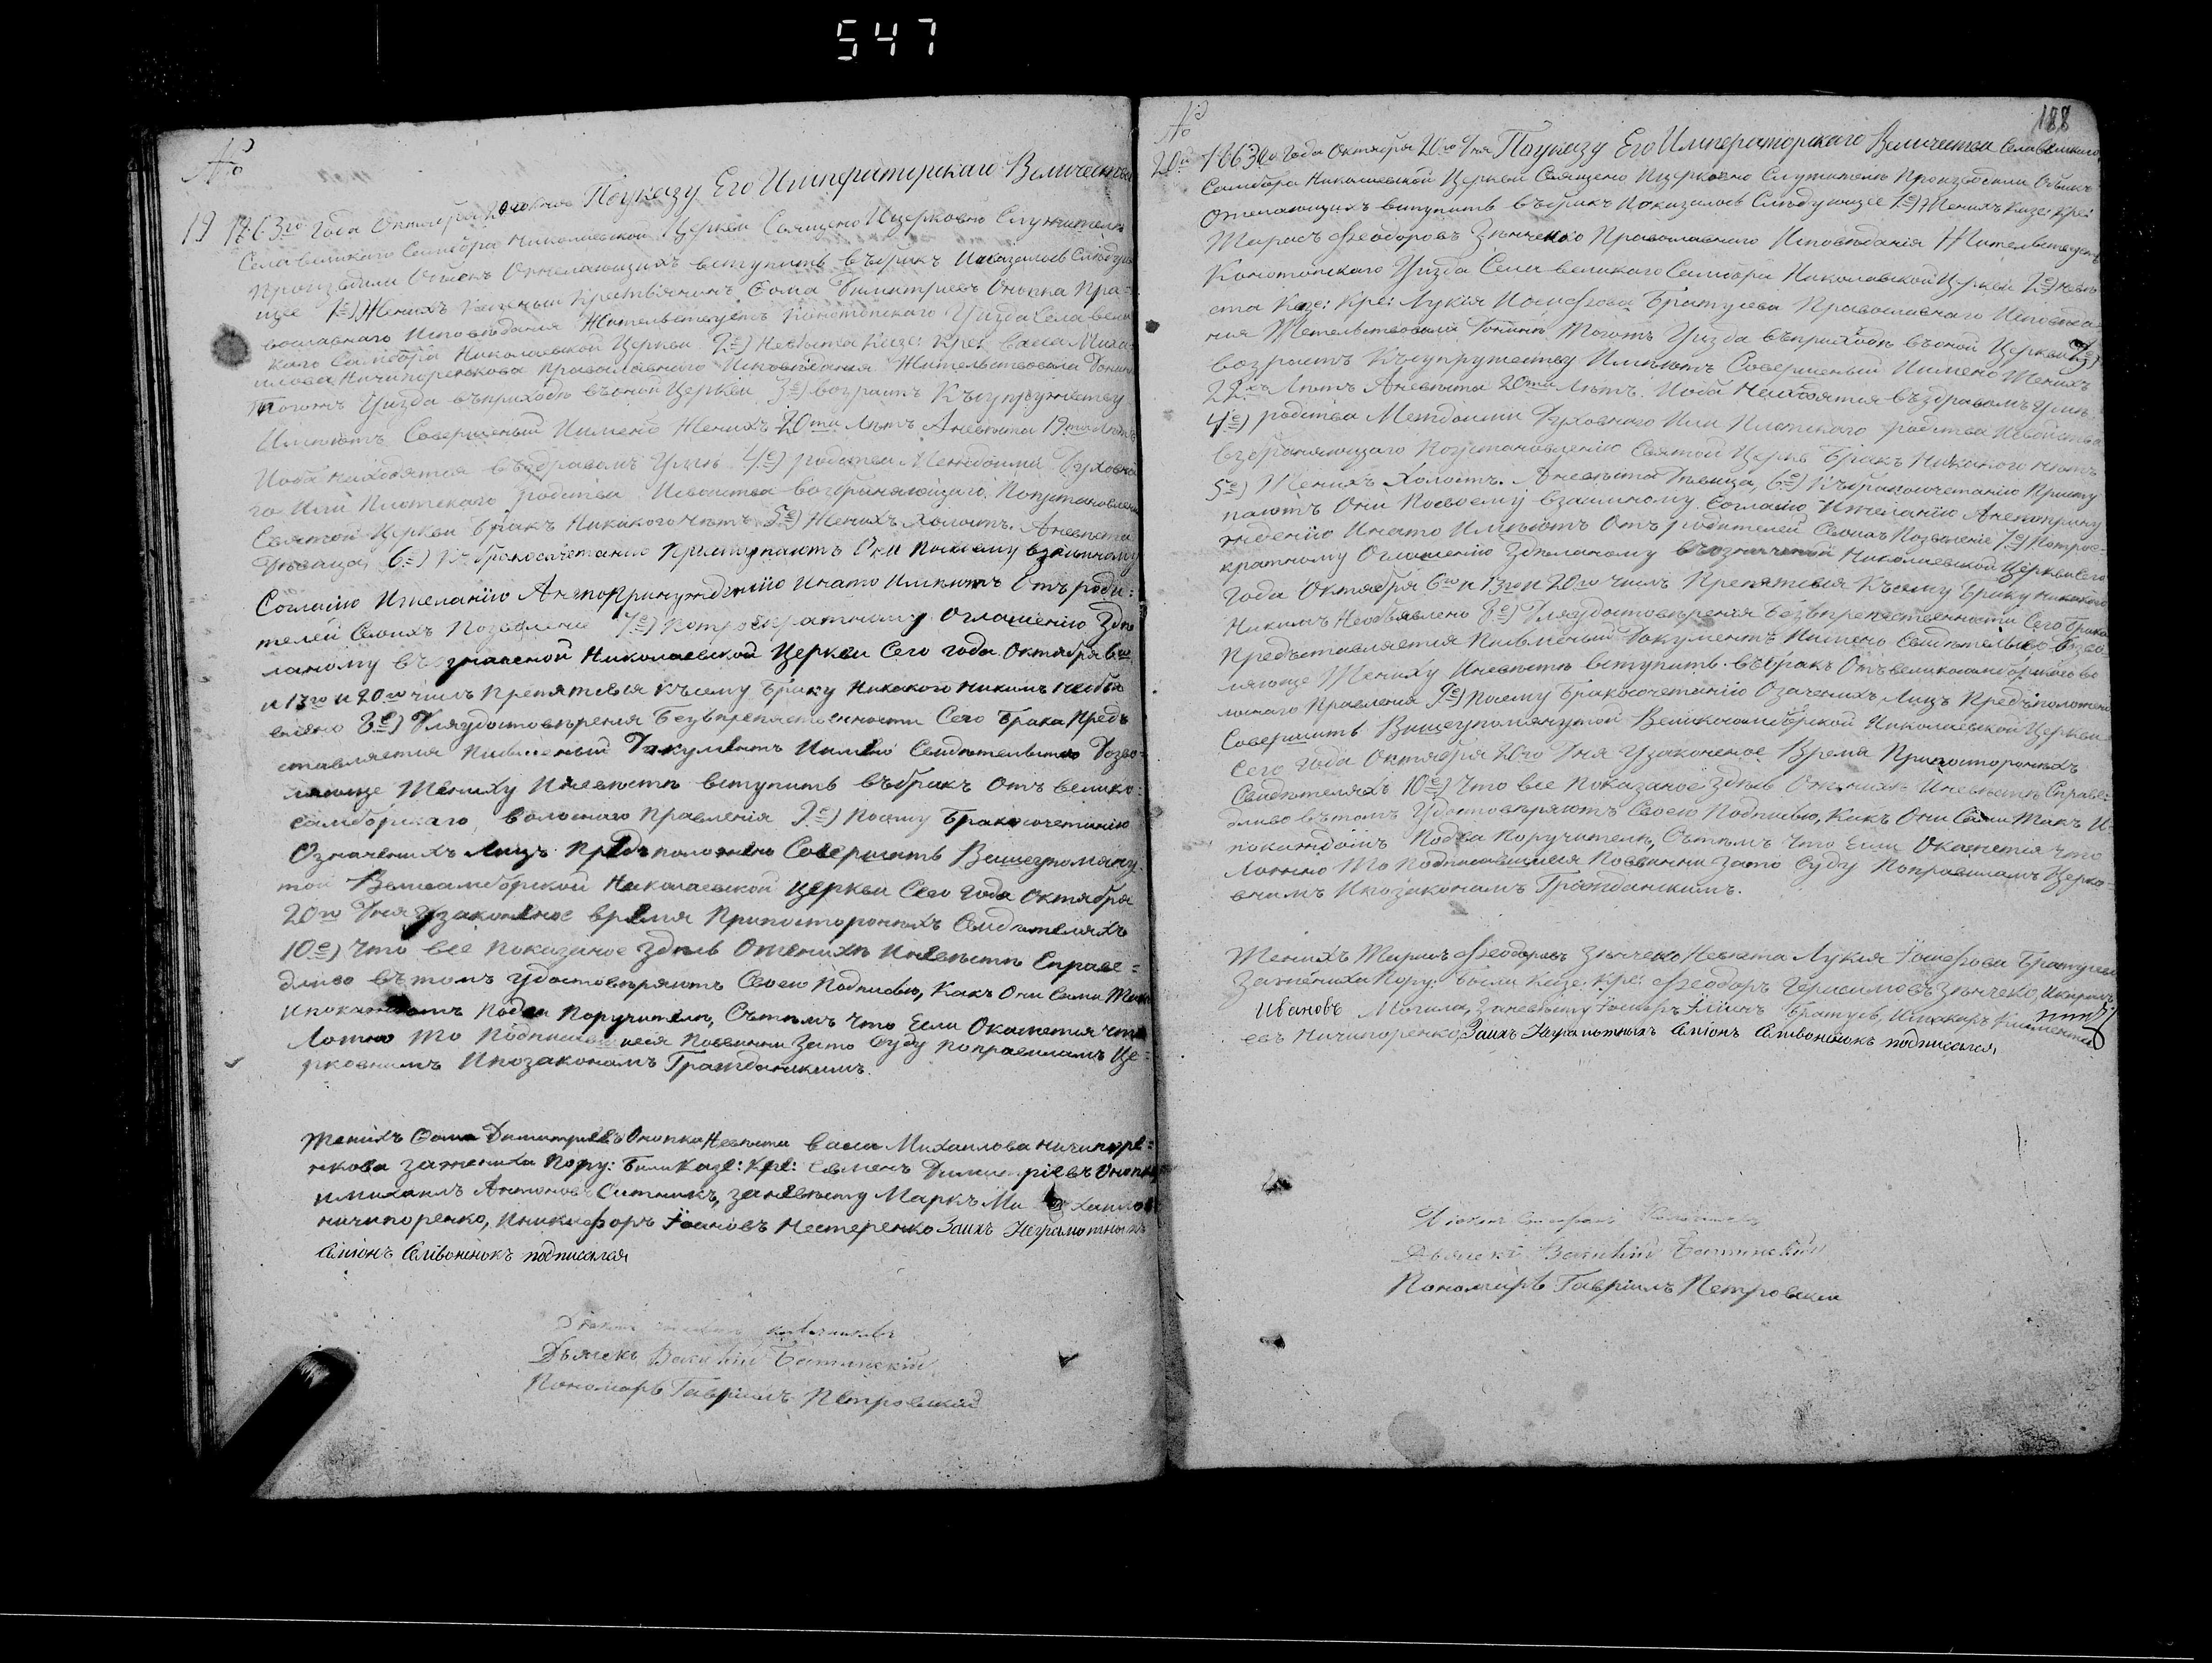 547
№
19 1863го года Октября 20го дня Поуказу Его Императорскаго Величества
Села великаго Самбора Николаевской Церкви Священо Ицерковно Служители
Производили Обыскъ Ожелающихъ вступить въбракъ Иоказалось Слѣдую
щее 1е) Женихъ Казеный Крестьянинъ Фома Димитриевъ Онопка Пра-
вославнаго Исповѣдания Жительствуетъ Конотопскаго Уизда Села вели
каго Самбора Николаевской Церкви 2е) Невѣста Казе: Кре: Васса Миха
илова Ничипоренкова православнаго Исповѣдания Жительствовала Донинѣ
Тогожъ Уизда въприходѣ въоной Церкви 3е) возрастъ Къսупружеству
Имѣютъ Совершеный Иимено Женихъ 20ти Лѣтъ Аневѣста 19ти Лѣтъ
Иоба находятся въздравомъ Умѣ 4е) родства Междоими Духовна
го Или Плотскаго родства Исвойства возбраняющаго Поустановлению
Святой Церкви бракъ Никакого нѣтъ 5е) Женихъ Холостъ. Аневѣста
Дѣвица, 6е) Къбракосочетанию Приступаютъ Они Посвоему взаимному
Согласию Ижеланию Анепопринуждению Инато Имѣютъ Отъ роди:
телей Своихъ Позволение 7е) Потроекратному Оглошению Здѣ
ланому въозначеной Николаевской Церкви Сего года Октября 6го
и 13го и 20го числъ Препятствия Къսему Браку Никакого Никимъ Необья
влено 8е) Дляудостовѣрения Безъпрепяственности Сего Брака Предъ
ставляется Письменый Документъ Иимено Свидѣтельство Дозво-
ляюще Жениху Иневѣстѣ вступить въбракъ Отъ велико:
самборскаго волоснаго Правления 9е) Посему Бракосочетанию
Означеныхъ Лицъ Предъположено Совершить Вышеупомяну
той Велисамборской Николаевской Церкви Сего года Октября
20го Дня Узаконеное время Припосторонныхъ Свидѣтеляхъ
10е) Что все показаное здѣсь Оженихѣ Иневѣстѣ Справе=
дливо вътомъ Удостовѣряютъ Своею Подписью, Какъ Они Сами Такъ
Ипокаждомъ Подва Поручителя, Сътѣмъ Что Если Окажется что
Ложно То Подписавшиеся Повинни Зато Суду Поправиламъ Це=
рковнымъ Ипозаконамъ Гражданскимъ.
Женихъ Фома Димитриевъ Онопка Невѣста Васса Михаилова Ничипоре=
нкова Зажениха Пору: Были Казе: Кре: Семенъ Димитриевъ Онопка
Имихаилъ Антоновъ Ситникъ, Заневѣсту Маркъ Михаиловъ
Ничипоренко, Иникифоръ Іоановъ Нестеренко Заихъ Неграмотныхъ
подписался
Дьячекъ Василий
Пономарь Гавриилъ Петровский
188
№
20й 1863го Года Октября 20го Дня Поуказу Его Императорскаго Величества Села великаго
Самбора Николаевской Церкви Священо Ицерковно Служители Производили Обыскъ
Ожелающихъ вступить въбракъ Иоказалось Слѣдующее 1е) Женихъ Казе: Кре:
Тарасъ Феодоровъ Зѣнченко Православнаго Исповѣдания Жительствуетъ
Конотопскаго Уизда Села великаго Самбора Николаевской Церкви 2е) Невѣ
ста Казе: Кре: Лукия Иосифова Братусева Православнаго Исповѣда
ния Жительствовала Донинѣ Тогожъ Уизда въприходѣ въоной Церкви 3е)
возрастъ Къսупружеству Имѣютъ Совершеный Иимено Женихъ
22хъ Лѣтъ Аневѣста 20ти Лѣтъ. Иоба Находятся въздравомъ Умѣ
4е) родства Междоими Духовнаго Или Плотскаго родства Исвойства
възбраняющаго Поустановлению Святой Церквѣ Бракъ Никакого нѣтъ
5е) Женихъ Холостъ. Аневѣста Дѣвица, 6е) Къбракосочетанию Присту
паютъ Они Посвоему взаимному Согласию Ижеланию Анепоприну
ждению Инато Имѣютъ Отъ родителей Своихъ Позволение 7е) Потрое-
кратному Оглошению Зделаному въозначеной Николаевской Церкви Сего
года Октября 6го и 13го и 20го числъ Препятствия Къսему Браку никакого
Никимъ Необъявлено 8е) Дляудостовѣрения Безъпрепяственности Сего Брака
Предъставляется Письменый Документъ Иимено Свидѣтельство Дозво-
ляюще Жениху Иневѣстѣ вступить въбракъ Отъвеликосамборскаго во
лоснаго Правления 9е) Посему Бракосочетанию Означеныхъ Лицъ Предъположено
Совершить Вышеупомянутой Великосамборской Николаевской Церкви
Сего года Октября 20го Дня Узаконеное Время Припосторонныхъ
Свидѣтеляхъ 10е) Что все Показаное здѣсь Оженихѣ Иневѣстѣ Справе:
дливо вътомъ Удостовѣряютъ Своею Подписью, Какъ Они Сами Такъ И-
покаждомъ Подва Поручителя, Сътѣмъ Что Если Окажется Что
Ложно То Подписавшиеся Повинни Зато Суду Поправиламъ Церко-
внымъ Ипозаконамъ Гражданскимъ.
Женихъ Тарасъ Феодоровъ Зѣнченко Невѣста Лукия Іосифова Братусева
Зажениха Пору: Были Казе: Кре: Феодоръ Герасимовъ Зѣнченко, Икирилъ
Ивановъ Могила, Заневѣсту Іосифъ Братусь, Имакаръ Климентьевъ
Ничипоренко, Заихъ Неграмотныхъ подписался
Дьячекъ Василий
Пономарь Гавриилъ Петровский